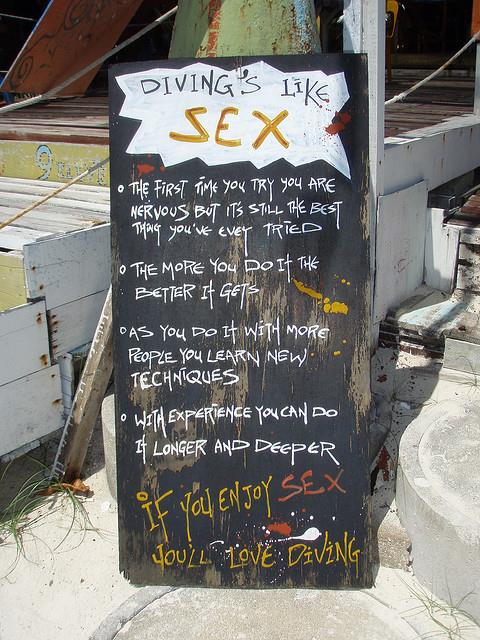 DIVING'S LIKE
SEX
• THE FIRST TIME YOU TRY YOU ARE
NERVOUS BUT IT'S STILL THE BEST
THING YOU'VE EVEY TRIED
• THE MORE YOU DO IT THE
BETTER IT GETS
• AS YOU DO IT WITH MORE
PEOPLE YOU LEARN NEW
TECHNIQUES
• WITH EXPERIENCE YOU CAN DO
IT LONGER AND DEEPER
IF YOU ENJOY SEX
YOU'LL LOVE DIVING
9